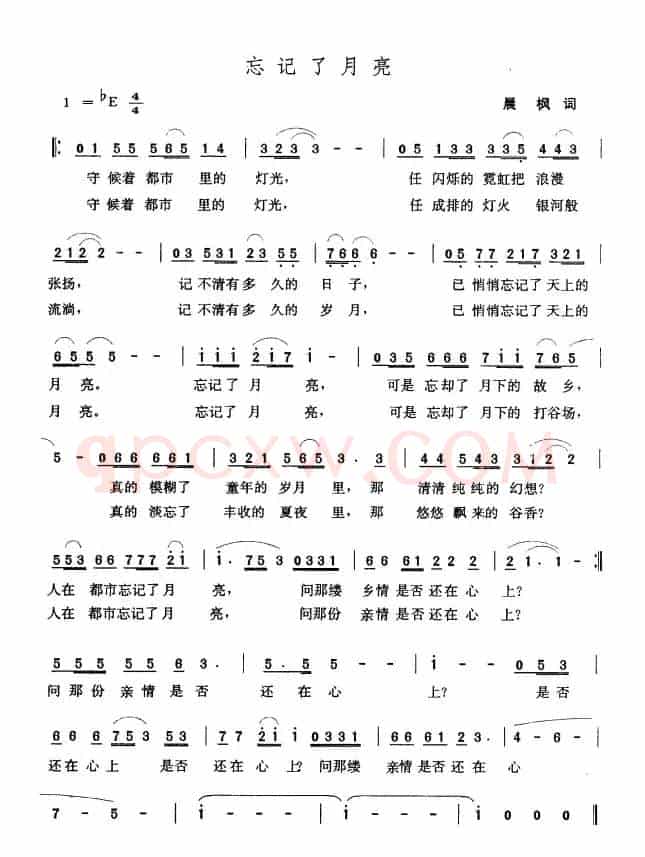 忘记了月亮
1 = ♭E 4/4 晨 枫 词
0 1 5 5 5 6 5 1 4 | 3 2 3 3 - - | 0 5 1 3 3 3 3 5 4 4 3 |
守 候着 都市 里的 灯光， 任 闪烁的 霓虹把 浪漫
守 候着 都市 里的 灯光， 任 成排的 灯火 银河般
2 1 2 2 - - | 0 3 5 3 1 2 3 5 5 | 7 6 6 6 - - | 0 5 7 7 2 1 7 3 2 1 |
张扬， 记 不清有多 久的 日 子， 已 悄悄忘记了 天上的
流淌， 记 不清有多 久的 岁 月， 已 悄悄忘记了 天上的
6 5 5 5 - - | i i i 2 i 7 i - | 0 3 5 6 6 6 7 i i 7 6 5 |
月 亮。 忘记了 月 亮， 可是 忘却了 月下的 故 乡，
月 亮。 忘记了 月 亮， 可是 忘却了 月下的 打谷场，
5 - 0 6 6 6 6 1 | 3 2 1 5 6 5 3 . 3 | 4 4 5 4 3 3 1 2 2 |
qpcxw.COM
真的 模糊了 童年的 岁月 里，那 清清 纯纯的 幻想？
真的 淡忘了 丰收的 夏夜 里，那 悠悠 飘来的 谷香？
5 5 3 6 6 7 7 7 2 i | i . 7 5 3 0 3 3 1 | 6 6 6 1 2 2 2 | 2 1 . 1 - :||
人在 都市忘记了 月 亮， 问那缕 乡情 是否 还在心 上？
人在 都市忘记了 月 亮， 问那份 亲情 是否 还在心 上？
5 5 5 5 5 6 3 . | 5 . 5 5 - | i - 0 5 3 |
问那份 亲情 是否 还 在心 上？ 是否
6 6 6 7 5 3 5 3 | 7 7 2 i i 0 3 3 1 | 6 6 6 1 2 3 . | 4 - 6 - |
还在 心 上 是否 还在 心 上？问那缕 亲情是否 还在 心
7 - 5 - | i - - - | i - - - | i 0 0 0 ||